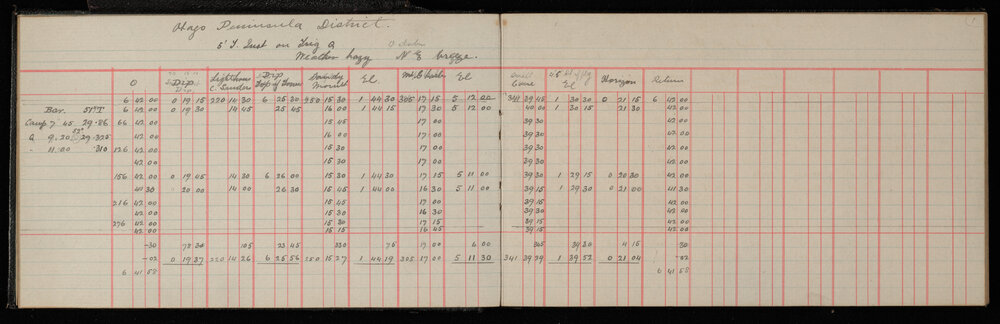 Otago Peninsula District.
5" T. Inst on Trig Q
Weather hazy N E breeze.
O Dip Lighthouse C. Saunders Dip Top of Tower El El El Horizon Return
6 42 00 0 19 15 220 14 30 6 25 30 250 15 30 1 44 30 305 17 15 5 12 00 341 39 45 1 30 30 0 21 15 6 42 00
Bar. 51°T 6 42 00 0 19 30 14 45 25 45 16 00 1 44 15 17 30 5 12 00 40 00 1 30 15 21 30 42 00
Camp 7 45 29.86 66 42 00 15 45 17 00 39 30 42 00
Q 9.20 52° 29.325 42 00 16 00 17 00 39 30 42 00
" 11.00 .310 126 42 00 15 30 17 00 39 30 42 00
42 00 15 30 17 00 39 30 42 00
156 42 00 0 19 45 14 30 6 26 00 15 30 1 44 30 17 15 5 11 00 39 30 1 29 15 0 20 30 42 00
41 30 20 00 14 00 26 30 15 45 1 44 00 16 30 5 11 00 39 15 1 29 30 0 21 00 41 30
216 42 00 15 45 17 00 39 15 42 00
42 00 15 30 16 30 39 30 42 00
276 42 00 15 30 17 15 39 15 42 00
42 00 15 15 16 45 39 15 42 00
-30 78 30 105 23 45 330 76 17 00 6 00 305 39 30 4 15 30
-02 0 19 37 220 14 26 6 25 56 250 15 27 1 44 19 305 17 00 5 11 30 341 39 29 1 39 52 0 21 04 -02
6 41 58 6 41 58